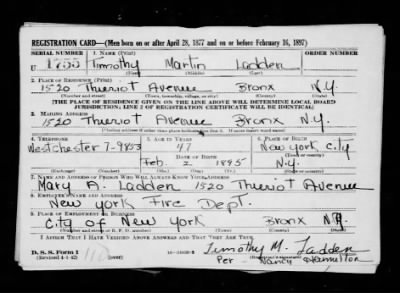 REGISTRATION CARD—(Men born on or after April 28, 1877 and on or before February 16, 1897)
SERIAL NUMBER 1. NAME (Print) ORDER NUMBER
U 1755 Timothy Martin Ladden
(First) (Middle) (Last)
2. PLACE OF RESIDENCE (Print)
1520 Theriot Avenue Bronx N.Y.
(Number and street) (Town, township, village, or city) (County) (State)
[THE PLACE OF RESIDENCE GIVEN ON THE LINE ABOVE WILL DETERMINE LOCAL BOARD
JURISDICTION; LINE 2 OF REGISTRATION CERTIFICATE WILL BE IDENTICAL]
3. MAILING ADDRESS
1520 Theriot Avenue Bronx N.Y.
[Mailing address if other than place indicated on line 2. If same insert word same]
4. TELEPHONE 5. AGE IN YEARS 6. PLACE OF BIRTH
Westchester 7-9853 47 New York City
DATE OF BIRTH (Town or county)
Feb. 2 1895 N.Y.
(Mo.) (Day) (Yr.) (State or country)
7. NAME AND ADDRESS OF PERSON WHO WILL ALWAYS KNOW YOUR ADDRESS
Mary A. Ladden 1520 Theriot Avenue
8. EMPLOYER'S NAME AND ADDRESS
New York Fire Dept.
9. PLACE OF EMPLOYMENT OR BUSINESS
City of New York Bronx N.Y.
(Number and street or R. F. D. number) (Town) (County) (State)
I AFFIRM THAT I HAVE VERIFIED ABOVE ANSWERS AND THAT THEY ARE TRUE.
Timothy M. Ladden
D. S. S. Form 1
(Revised 4-1-42)
Per Nancy Hamilton